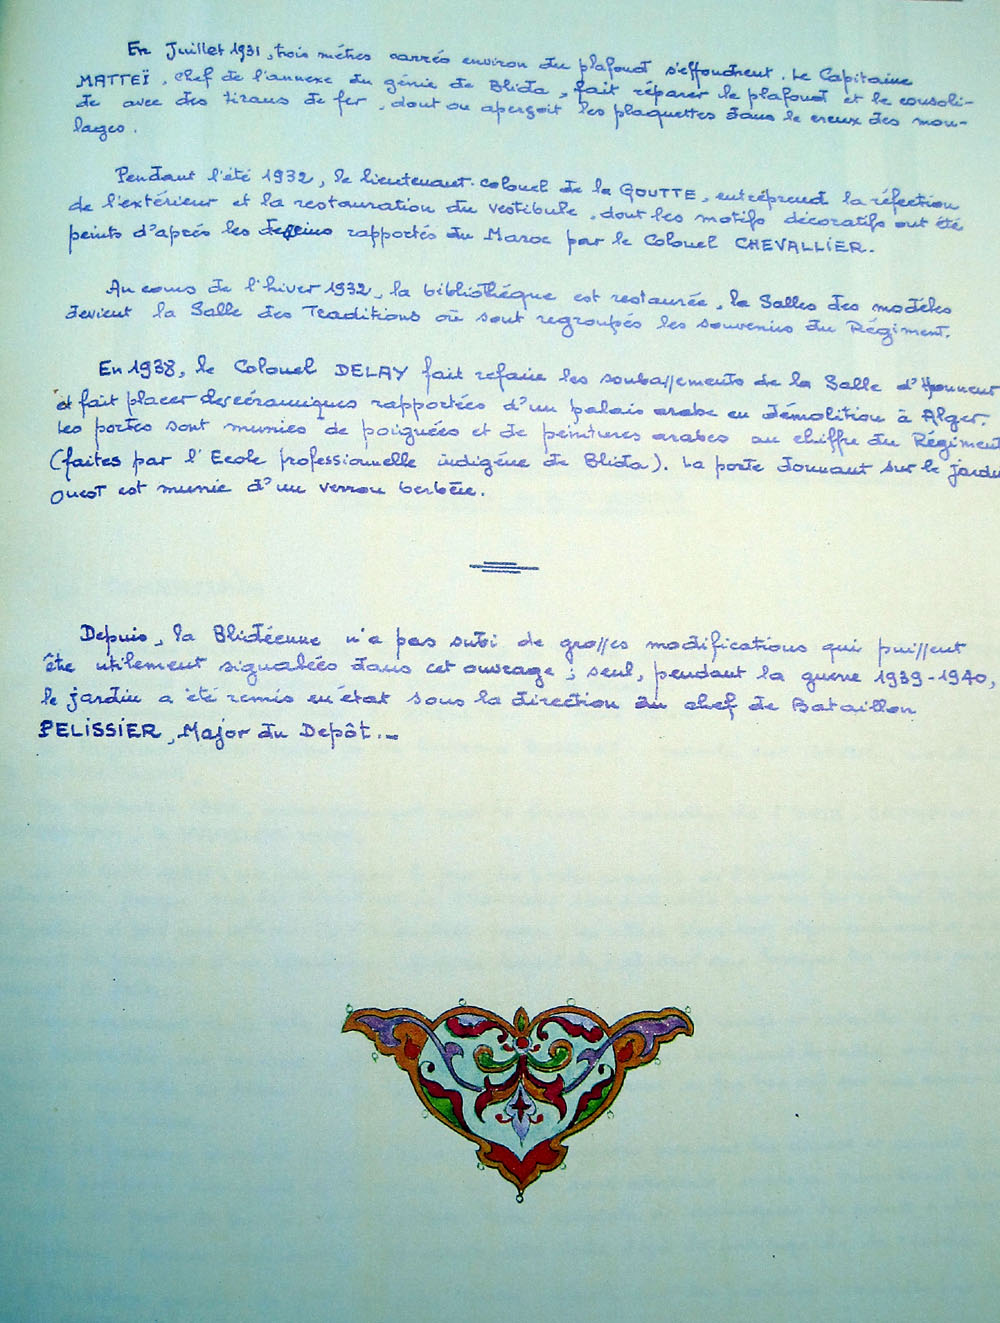 En Juillet 1931, trois mètres carrés environ du plafond s'effondrent. Le Capitaine
MATTEÏ, chef de l'annexe du génie de Blida, fait réparer le plafond et le consoli-
de avec des tirans de fer, dont on aperçoit les plaquettes dans le creux des mou-
lages.
Pendant l'été 1932, le lieutenant-colonel de la GOUTTE, entréprend la réfection
de l'extérieur et la restauration du vestibule, dont les motifs décoratifs ont été
peints d'après les dessins rapportés du Maroc par le Colonel CHEVALLIER.
Au cours de l'hiver 1932, la bibliothéque est restaurée, la Salles des modèles
devient la Salle des Traditions où sont regroupés les souvenirs du Régiment.
En 1938, le Colonel DELAY fait refaire les soubassements de la Salle d'Honneur
et fait placer des céramiques rapportées d'un palais arabe en démolition à Alger.
Les portes sont munies de poignées et de peintures arabes au chiffre du Régiment
(faites par l'Ecole professionnelle indigéne de Blida). La porte donnant sur le jardin
Ouest est munie d'un verrou berbère.
Depuis, la Blidéenne n'a pas subi de grosses modifications qui puissent
être utilement signalées dans cet ouvrage; seul, pendant la guerre 1939-1940,
le jardin a été remis en état sous la direction du chef de Bataillon
PELISSIER, Major du Depôt.-